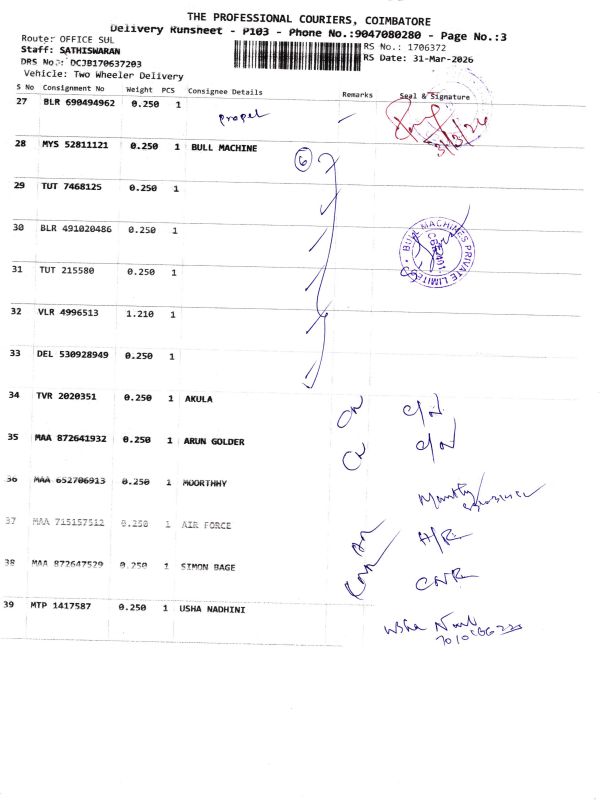 THE PROFESSIONAL COURIERS, COIMBATORE
Delivery Runsheet - P103 - Phone No.:9047080280 - Page No.:3
Route: OFFICE SUL
RS No.: 1706372
Staff: SATHISWARAN
DRS No.: DCJB170637203
RS Date: 31-Mar-2026
Vehicle: Two Wheeler Delivery
S No Consignment No Weight PCS Consignee Details Remarks Seal & Signature
27 BLR 690494962 0.250 1 propel
31/3/26
28 MYS 52811121 0.250 1 BULL MACHINE 6
29 TUT 7468125 0.250 1
30 BLR 491020486 0.250 1
BULL MACHINES PRIVATE LIMITED
31 TUT 215580 0.250 1
32 VLR 4996513 1.210 1
33 DEL 530928949 0.250 1
34 TVR 2020351 0.250 1 AKULA
35 MAA 872641932 0.250 1 ARUN GOLDER
36 MAA 652706913 0.250 1 MOORTHHY
37 MAA 715157512 0.250 1 AIR FORCE
38 MAA 872647529 0.250 1 SIMON BAGE
39 MTP 1417587 0.250 1 USHA NADHINI